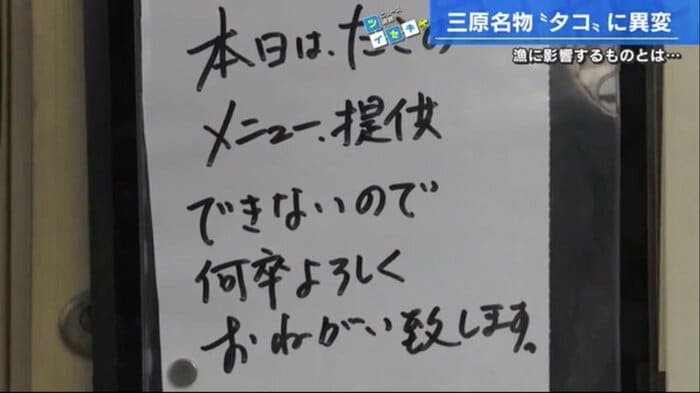 三原名物〝タコ〟に異変
漁に影響するものとは…
ツイセキ
本日は、たこの
メニュー、提供
できないので
何卒よろしく
おねがい致します。